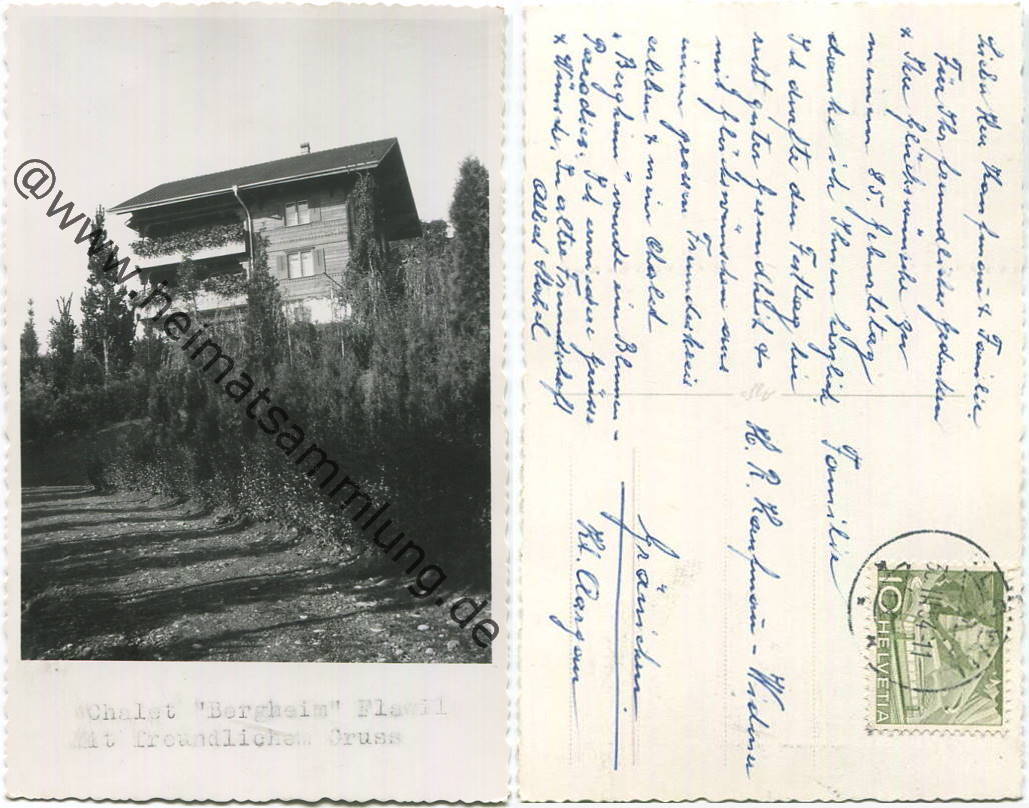 @www.heimatsammlung.de
Chalet "Bergheim" Flawil
Mit freundlichem Gruss
Lieber Herr Kaufmann & Familie.
Für Ihr freundliches Gedenken
& Ihre Glückwünsche zu
meinem 85. Geburtstag
danke ich Ihnen herzlich
Ich durfte den Festtag bei
recht guter Gesundheit &
mit Glückwünschen aus
einem grossen Freundeskreis
erleben & mein Chalet
"Bergheim" wurde ein Blumen-
Paradies. Ich erwidere Grüsse
& Wünsche. In alter Freundschaft
Familie
H. R. Kaufmann-Widmer
Gränichen
Kt. Aargau
10 HELVETIA